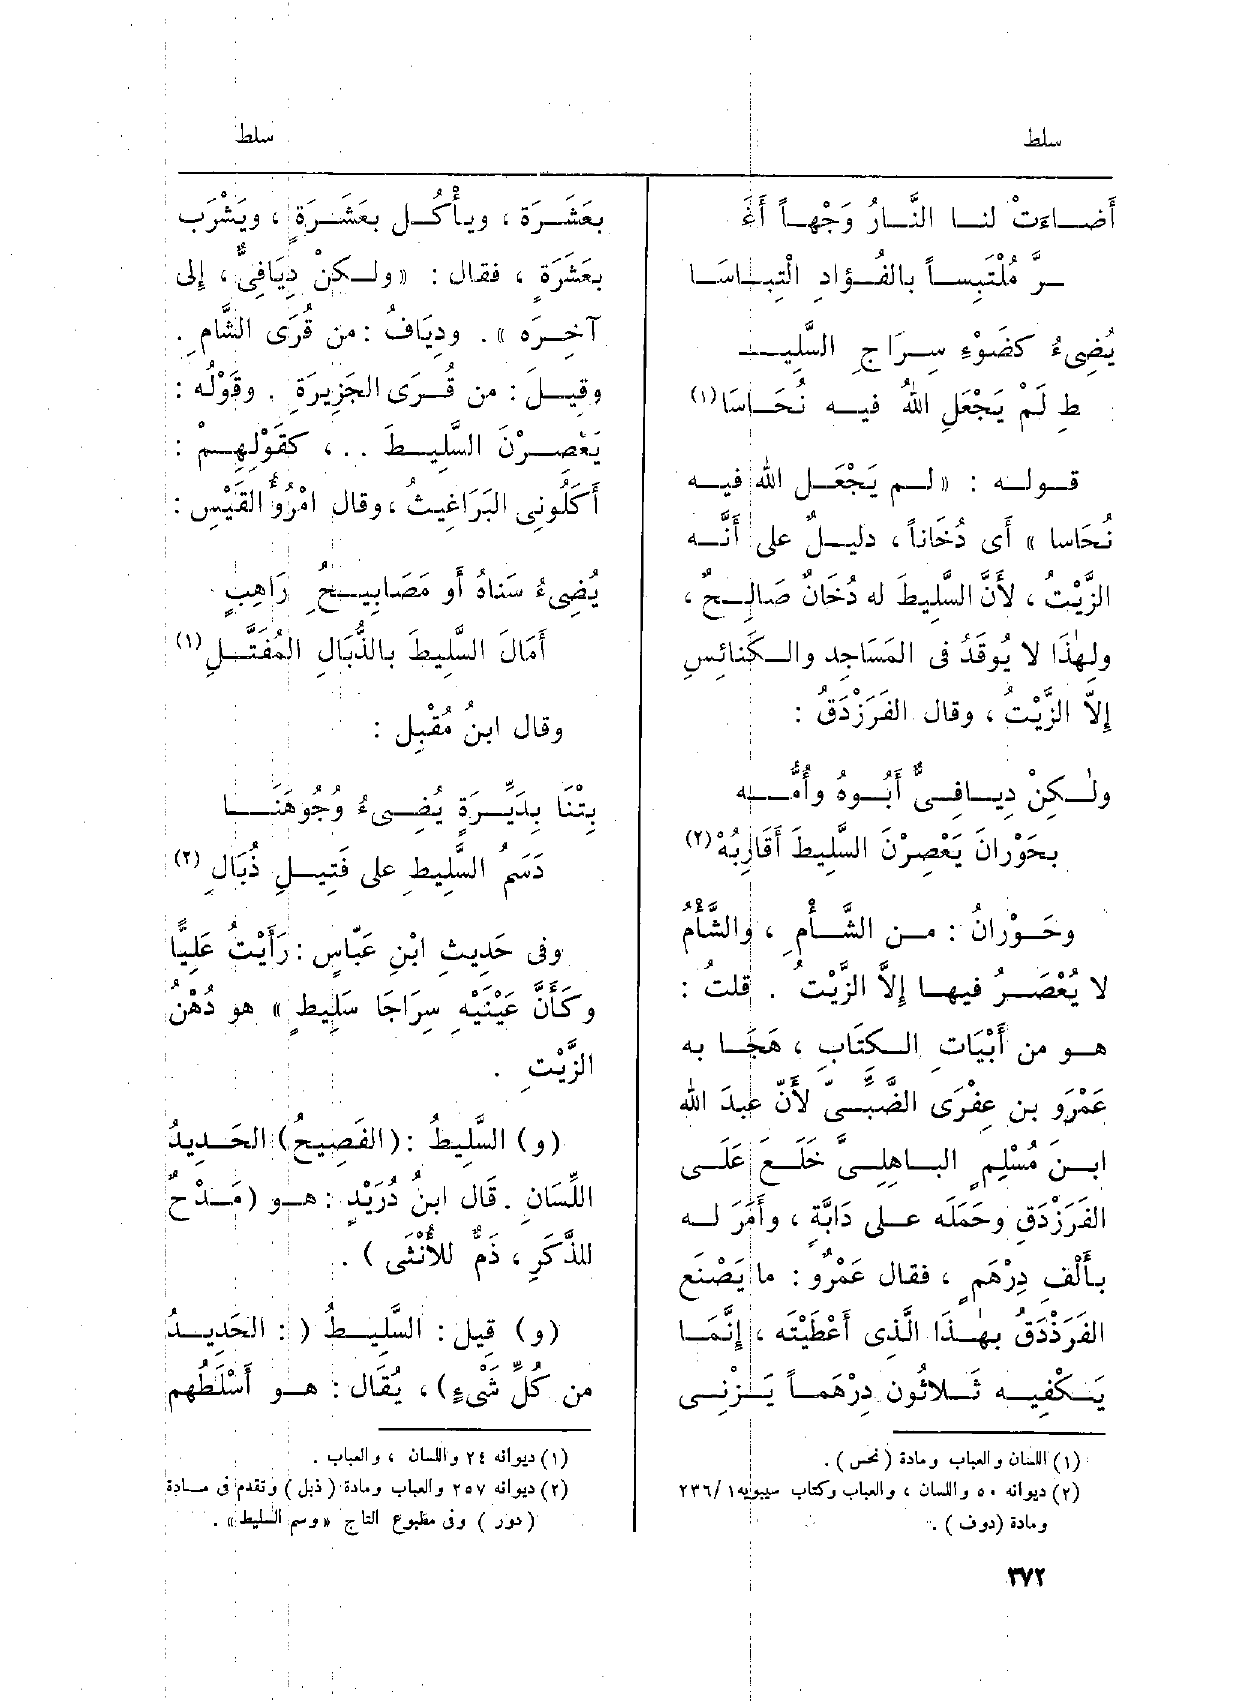 سلط
سلط
أَضـاءَتْ لنـا النَّـارُ وَجْهـاً أَغَـ
ـرَّ مُلْتَبِسـاً بالفُـؤادِ الْتِبـاسَـا
يُضِىءُ كَضَوْءِ سِـرَاجِ السَّلِيـ
ـطِ لَمْ يَجْعَلِ اللهُ فيـه نُحَـاسَا(١)
قـولـه : « لـم يَجْعَـلِ اللهُ فيـه
نُحَاسا » أَى دُخَاناً ، دليـلٌ على أَنَّـه
الزَّيْتُ ، لأَنَّ السَّلِيطَ له دُخَانٌ صَالِـحٌ ،
ولِهٰذَا لا يُوقَدُ فى المَسَاجِد والـكَنائِسِ
إِلاّ الزَّيْتُ ، وقال الفَرَزْدَقُ :
ولٰـكِنْ دِيـافِـىٌّ أَبُـوهُ وأُمُّـه
بحَوْرانَ يَعْصِرْنَ السَّلِيطَ أَقَارِبُهْ(٢)
وحَـوْرانُ : مـن الشَّـأْمِ ، والشَّأْمُ
لا يُعْصَـرُ فيهـا إِلاَّ الزَّيْتُ . قلتُ :
هـو من أَبْيَاتِ الـكِتَابِ ، هَجَـا به
عَمْرَو بن عِفْرَى الضَّبِّـىَّ لأَنّ عبدَ الله
ابـنَ مُسْلِمٍ البـاهِلِـىَّ خَلَـعَ عَلَـى
الفَرَزْدَقِ وحَمَلَه علـى دَابَّةٍ ، وأَمَرَ لـه
بأَلْفِ دِرْهَمٍ ، فقال عَمْرٌو : ما يَصْنَع
الفَرَزْدَقُ بهـٰذَا الَّذِى أَعْطَيْتَه ، إِنَّمَـا
يَـكْفِيـه ثَـلاثُون دِرْهَمـاً يَـزْنِـى
(١) اللسان والعباب ومادة (نحس) .
(٢) ديوانه ٥٠ واللسان ، والعباب وكتاب سيبويه ١/٢٣٦
ومادة (دوف) .
بعَشَـرَة ، ويـأْكُـل بعَشَـرَةٍ ، ويَشْرَب
بعَشَرَةٍ ، فقال : « ولـكنْ دِيَافِىٌّ ، إِلى
آخِـرَه » . ودِيَافُ : من قُرَى الشَّامِ .
وقِيـلَ : من قُـرَى الجَزِيرَةِ . وقَوْلُه :
يَعْصِـرْنَ السَّلِيـطَ .. ، كقَوْلِهِـمْ :
أَكَلُونِى البَرَاغِيثُ ، وقال امْرُؤُ القَيْسِ :
يُضِىءُ سَناهُ أَو مَصَابِيـحُ رَاهِبٍ
أَمَالَ السَّلِيطَ بالذُّبَالِ المُفَتَّـلِ(١)
وقال ابنُ مُقْبِل :
بِتْنَا بِدَيِّـرَةٍ يُضِـىءُ وُجُوهَنَـا
دَسَمُ السَّلِيطِ على فَتِيـلِ ذُبَالِ (٢)
وفى حَدِيثِ ابْنِ عَبّاسٍ : رَأَيْتُ عَلِيًّا
وكَأَنَّ عَيْنَيْهِ سِرَاجَا سَلِيطٍ » هو دُهْنُ
الزَّيْتِ .
(و) السَّلِيطُ : (الفَصِيحُ) الحَـدِيدُ
اللِّسَانِ . قَال ابنُ دُرَيْدٍ : هـو (مَـدْحٌ
للذَّكَرِ ، ذَمٌّ للأُنْثَى ) .
(و) قِيلَ : السَّلِيـطُ ( : الحَدِيـدُ
من كُلِّ شَىْءٍ) ، يُقَال : هـو أَسْلَطُهم
(١) ديوانه ٢٤ واللسان ، والعباب .
(٢) ديوانه ٢٥٧ والعباب ومادة (ذبل) وتقدم فى مـادة
(دور) وفى مطبوع التاج «وسم السليط» .
٣٧٢